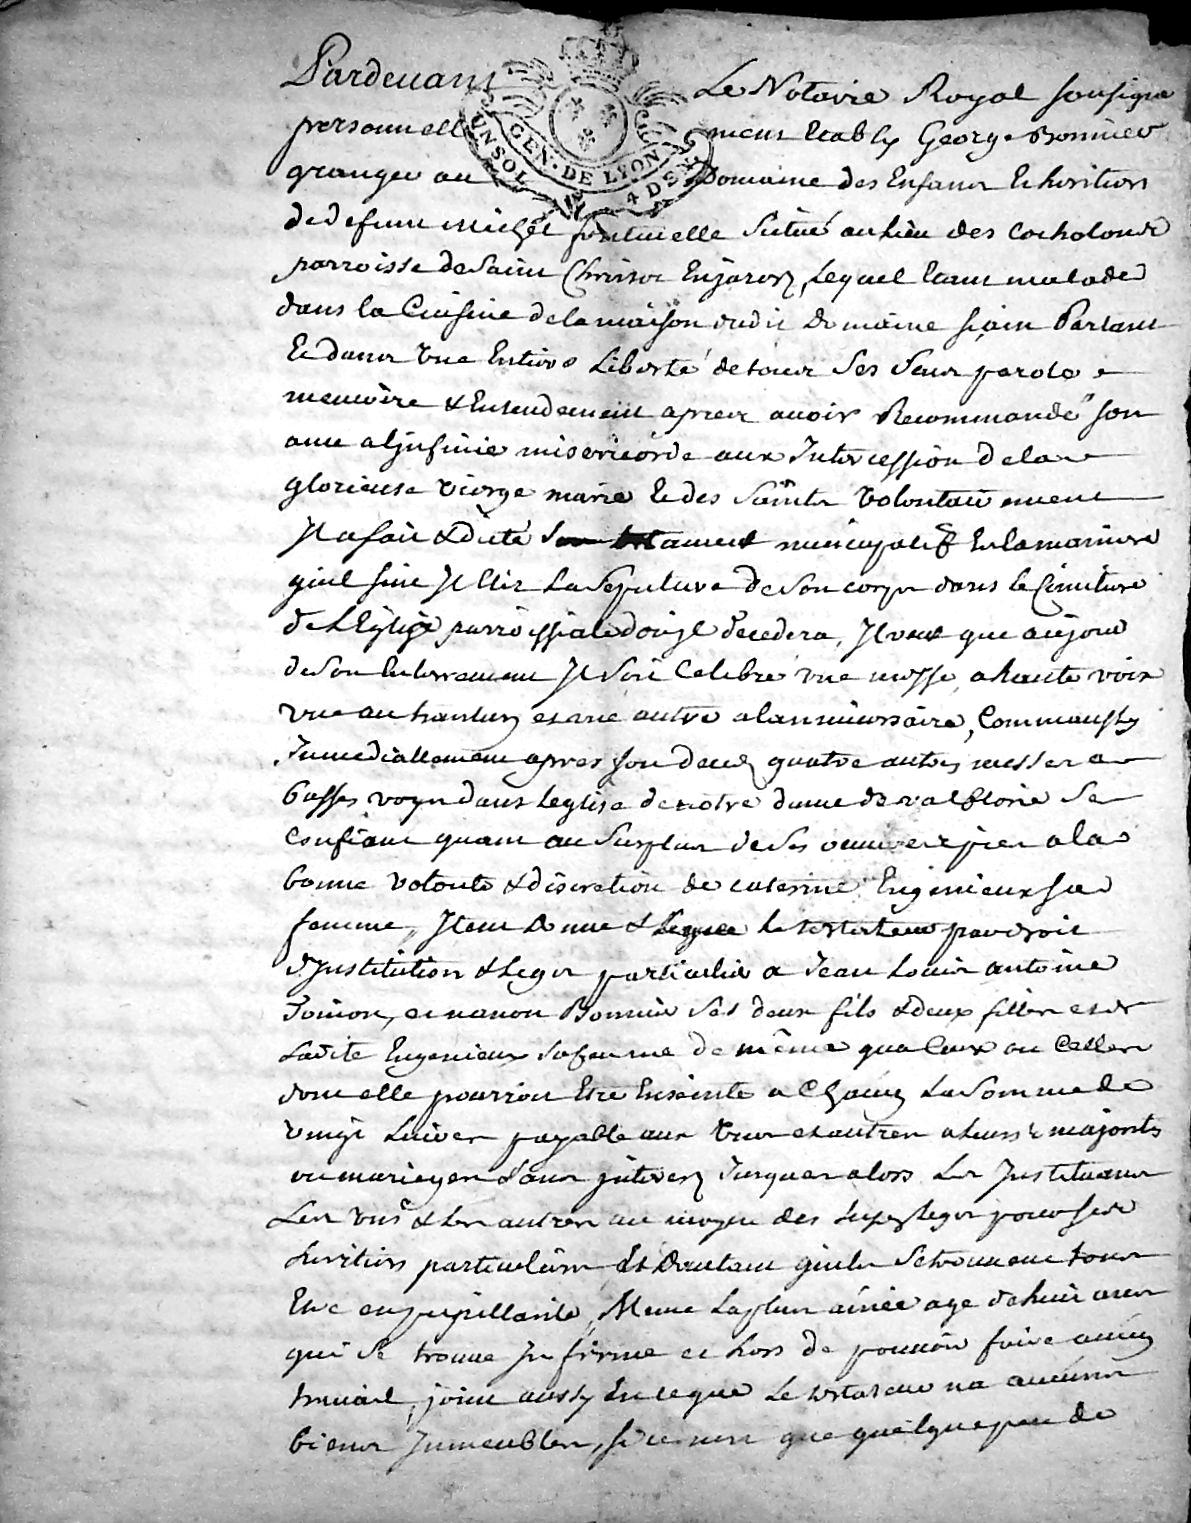 Pardevant Le Notaire Royal sousigne
GEN. DE LYON
UNSOL 4 DEN
personnellement Etably George Bonnier
granger au Domaine des Enfans & heritiers
de defunt michel fontuielle Situé au lieu des
parroisse de Saint Christot Enjarez, Lequel Etant malade
dans la Cuisine de la maison dudit Domaine siain Partant
Et dans Une Entiere Liberté de tous Ses Sens parole
memoire & Entendement apres avoir Recommandé son
ame a l'Jnfinie misericorde aux Jntercession de la
glorieuse vierge marie Et des Saints Volontairement
Jl a fait & dicté Son testament nuncupatif En la maniere
quil suit Jl Elit La Sepulture de Son corps dans le Cimitiere
de L Eglise parroissiale d'ou jl decedera, Jl veut que au jour
de Son Enterrement Jl Soit Celebré une messe a haute voix
une au trantin et une autre a lanniversaire, Comm aussy
Jmmediattement apres son deces quatre autres messes a
basses voyx dans Leglise de notre dame de valfloris Se
Confiant quant au Surplus de Ses oeuvres pies a la
bonne volonte & discretion de caterine Enjenieux sa
femme, Jtem Donne & Legue le testateur par droit
d'Justitution & Legs particulier a Jean Louis antoine
Toinon, et nanon Bonnier Ses deux fils & deux filles et de
Ladite Engenieux Sa femme de même qua Ceux ou Celles
dont elle pourroit Etre Enseinte a Chacun La Somme de
vingt Livres payable aux Uns et autres a leurs majorité
ou mariages Sans jnterez Jusques alors Les Jnstituant
Les uns & Les autres au moyen des legs pour Ses
heritiers particuliers Et Dautant quils Se trouvent tous
Etre en pupillarité, Meme La plus ainée age de huit ans
qui Se trouve Jnfirme et hors de pouvoir faire aucun
travail, joint aussy En ce que Le testateur na aucuns
biens Jmmeubles, si ce nest que quelque peu de